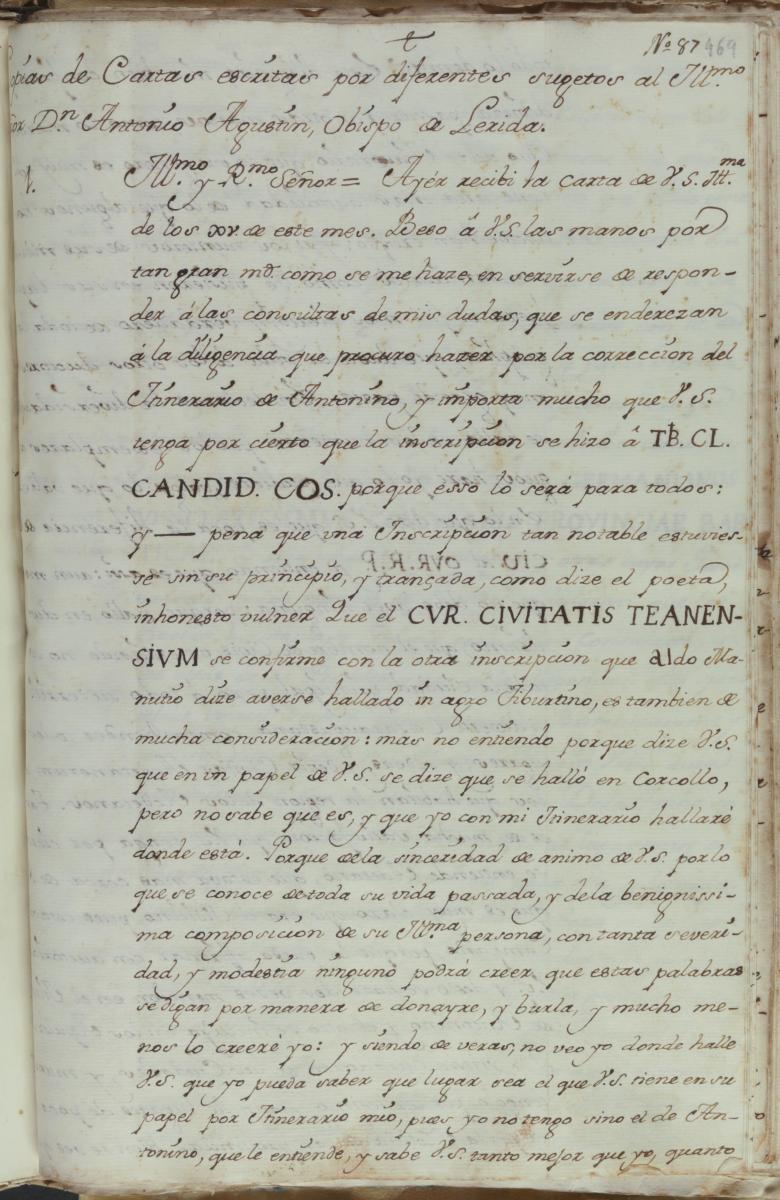 Nº 87 469
opias de Cartas escritas por diferentes sugetos al Ill.mo
or D.n Antonio Agustin, Obispo de Lerida.
1. Ill.mo y R.mo Señor = Ayér recibi la carta de V.S. Ill.ma
de los xv de este mes. Beso â V.S. las manos por
tan gran md. como se me haze, en servirse de respon-
der á las consultas de mis dudas, que se enderezan
á la diligencia que procuro hazér por la correccion del
Itinerario de Antonino, y importa mucho que V.S.
tenga por cierto que la inscripcion se hizo â TB. CL.
CANDID. COS. porque esso lo será para todos:
y — pena que una Inscripcion tan notable estuvies-
se sin su principio, y trançada, como dize el poeta,
inhonesto vulner Que el CVR. CIVITATIS TEANEN-
SIVM se confirme con la otra inscripcion que aldo Ma-
nutio dize averse hallado in agro Tiburtino, es tambien de
mucha consideracion: mas no entiendo porque dize V.S.
que en un papel de V.S. se dize que se halló en Corcollo,
pero no sabe que es, y que yo con mi Itinerario hallaré
donde está. Porque de la sinceridad de animo de V.S. por lo
que se conoce de toda su vida passada, y de la benignissi-
ma composicion de su Ill.ma persona, con tanta severi-
dad, y modestia ninguno podrá creer que estas palabras
se digan por manera de donayre, y burla, y mucho me-
nos lo creeré yo: y siendo de veras, no veo yo donde halle
V.S. que yo pueda saber que lugar sea el que V.S. tiene en su
papel por Itinerario mio, pues yo no tengo sino el de An-
tonino, que le entiende, y sabe V.S. tanto mejor que yo, quanto